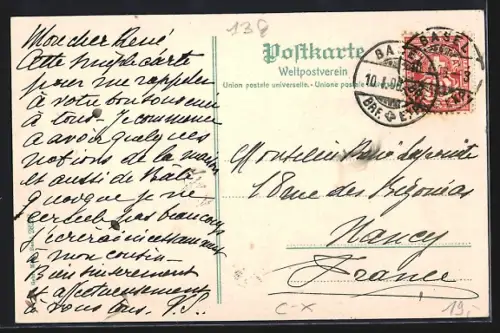 138
Postkarte
Weltpostverein
Union postale universelle. - Unione postale
BASEL
10.I.08
BRF. EXP.
BASEL
Mon cher René
Cette simple carte
pour me rappeler
à votre bon souvenir
à tous. Je commence
à avoir quelques
notions de la maison
et aussi de Bâle
quoique je ne
sorte pas beaucoup
J'écrirai incessamment
à mon cousin
Bien sincèrement
et affectueusement
à vous tous.
Monsieur René
18 rue des Bégonias
Nancy
France
C-X
19,-